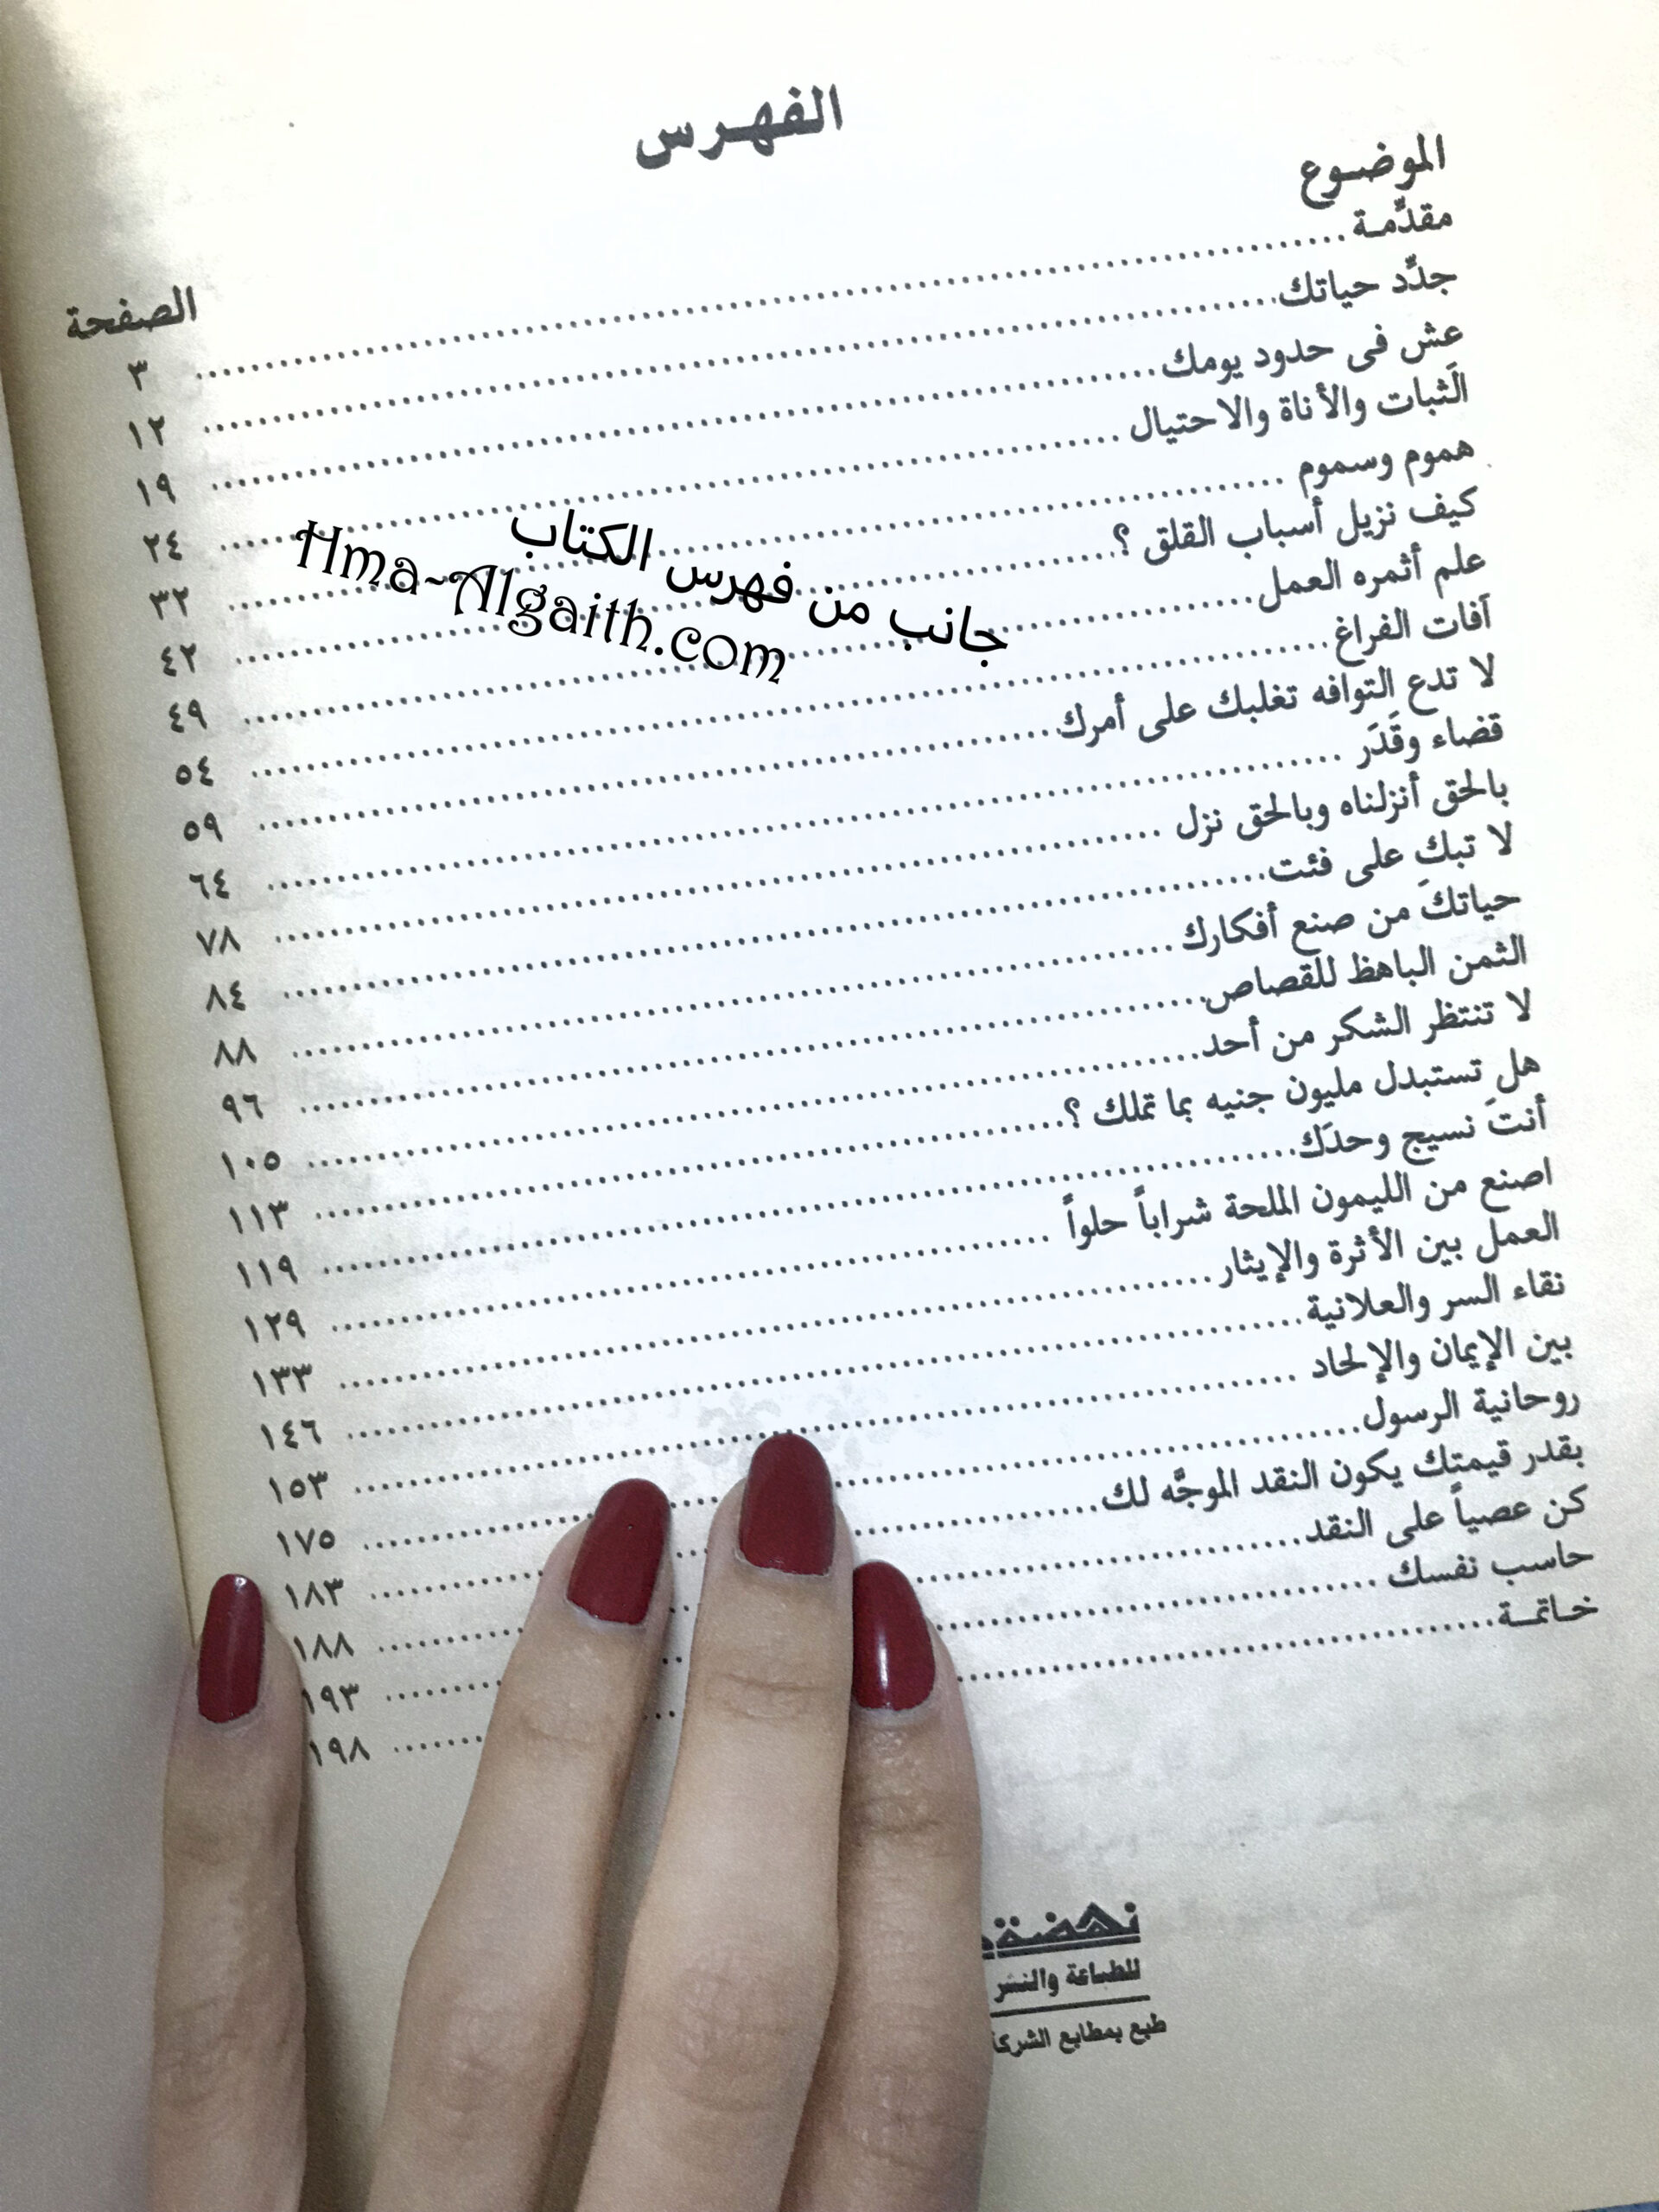 الفهـرس
الموضـوع الصفحة
مقدِّمـة ٣
جدِّد حياتك ١٢
عش فى حدود يومك ١٩
الثَبات والأناة والاحتيال ٢٤
هموم وسموم ٣٢
كيف نزيل أسباب القلق ؟ ٤٢
علم أثمره العمل ٤٩
آفات الفراغ ٥٤
لا تدع التوافه تغلبك على أمرك ٥٩
قضاء وقَدَر ٦٤
بالحق أنزلناه وبالحق نزل ٧٨
لا تبكِ على فئت ٨٤
حياتكَ من صنع أفكارك ٨٨
الثمن الباهظ للقصاص ٩٦
لا تنتظر الشكر من أحد ١٠٥
هل تستبدل مليون جنيه بما تملك ؟ ١١٣
أنتَ نسيج وحدَك ١١٩
اصنع من الليمون الملحة شراباً حلواً ١٢٩
العمل بين الأثرة والإيثار ١٣٣
نقاء السر والعلانية ١٤٦
بين الإيمان والإلحاد ١٥٣
روحانية الرسول ١٧٥
بقدر قيمتك يكون النقد الموجَّه لك ١٨٣
كن عصياً على النقد ١٨٨
حاسب نفسك ١٩٣
خـاتمـة ١٩٨
جانب من فهرس الكتاب
Hma-Algaith.com
نهضة
للطباعة والنشر
طبع بمطابع